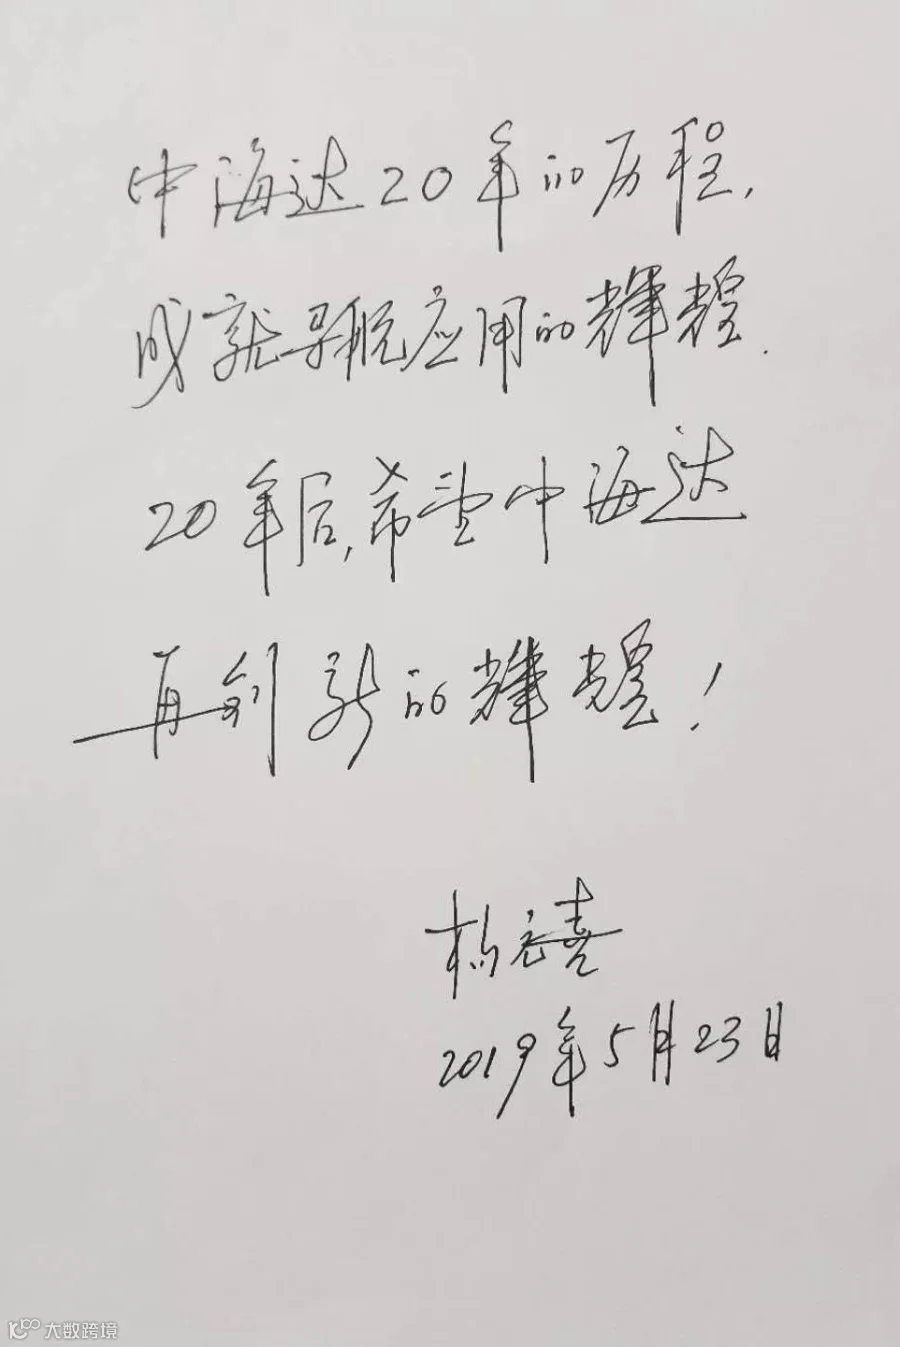 中海达20年的历程，
成就导航应用的辉煌.
20年后,希望中海达
再创新的辉煌！
杨元喜
2019年5月23日
大数跨境